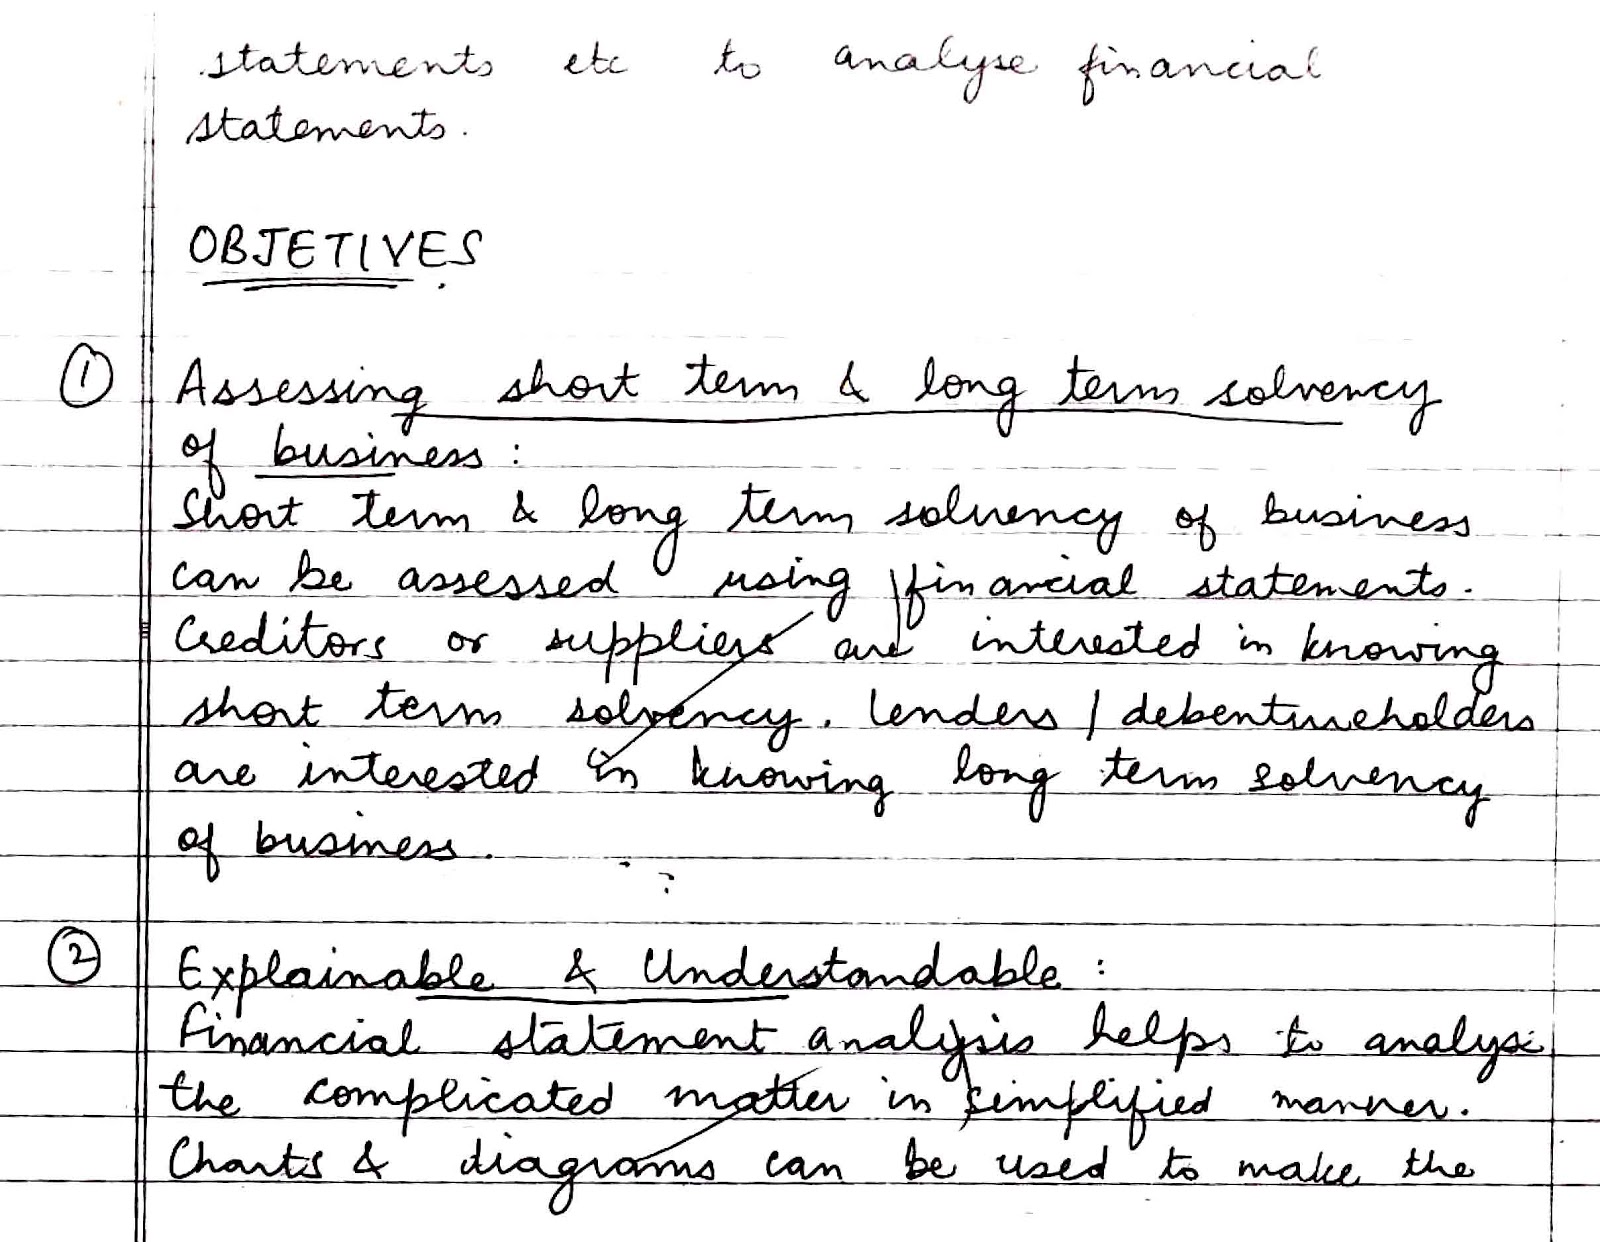 statements etc to analyse financial
statements.
OBJETIVES
① Assessing short term & long term solvency
of business :
Short term & long term solvency of business
can be assessed using financial statements.
Creditors or suppliers are interested in knowing
short term solvency. Lenders / debentureholders
are interested in knowing long term solvency
of business.
② Explainable & Understandable :
Financial statement analysis helps to analyse
the complicated matter in simplified manner.
Charts & diagrams can be used to make the